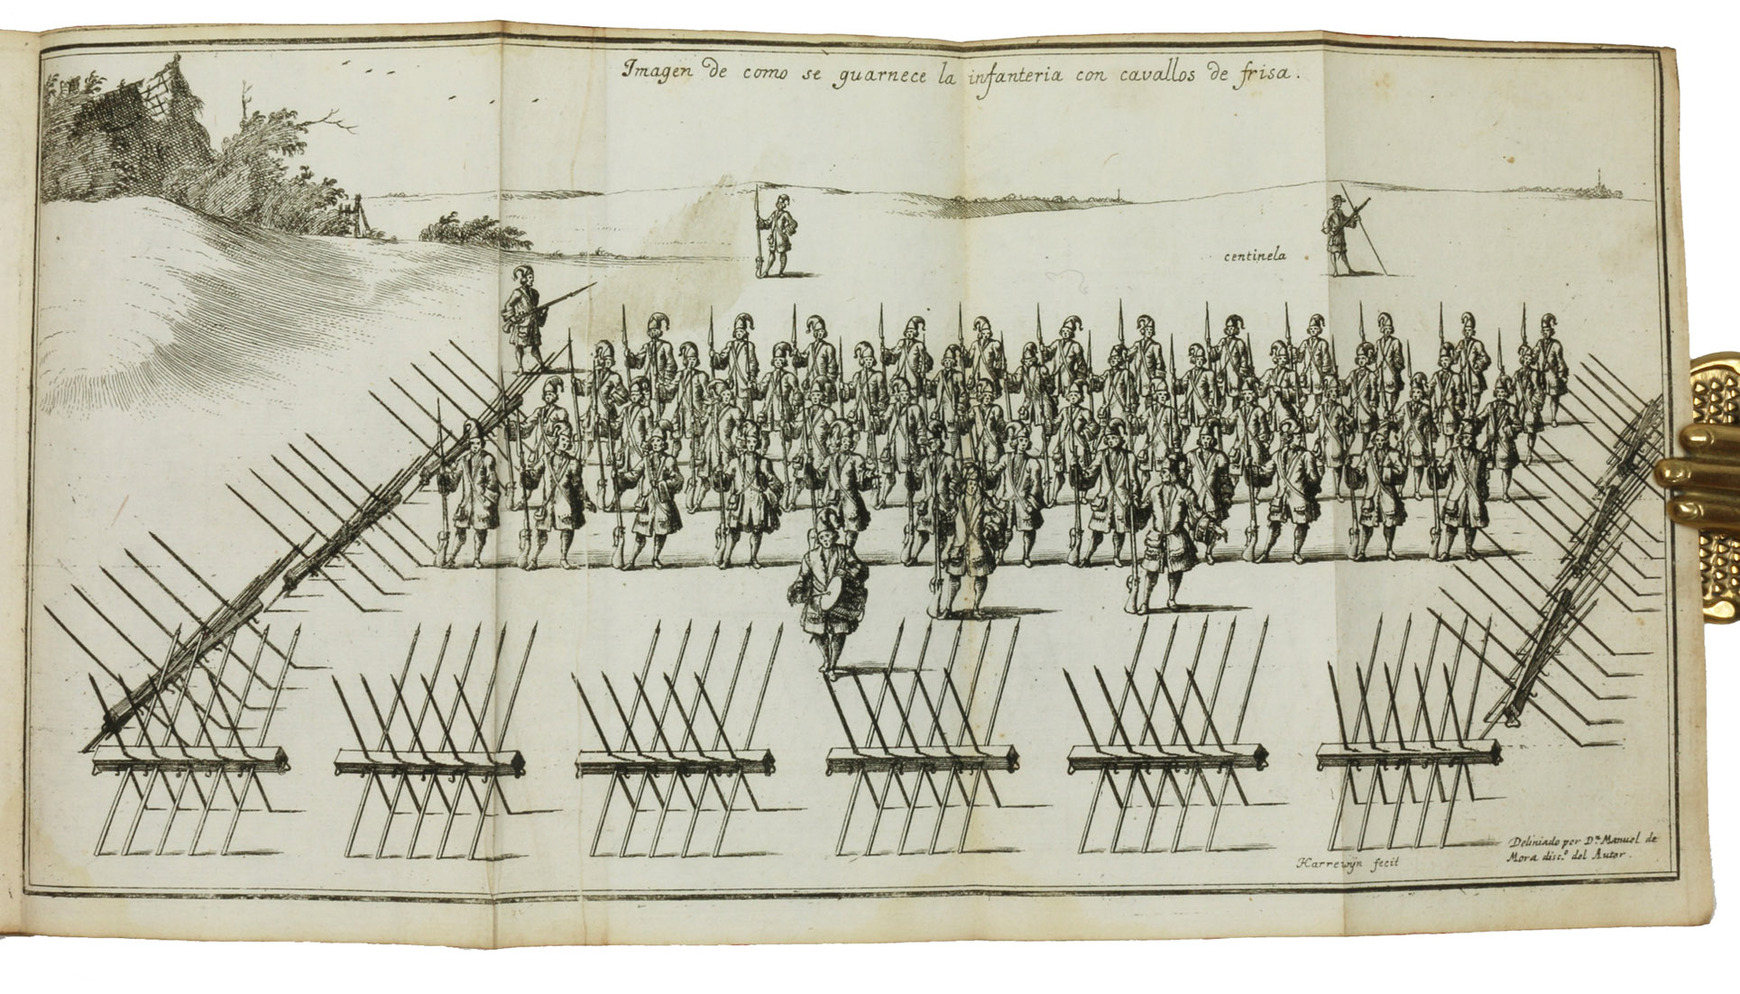 Imagen de como se guarnece la infanteria con cavallos de frisa.
centinela
Deliniado por D.ⁿ Manuel de
Mora disc.º del Autor.
Harrewijn fecit